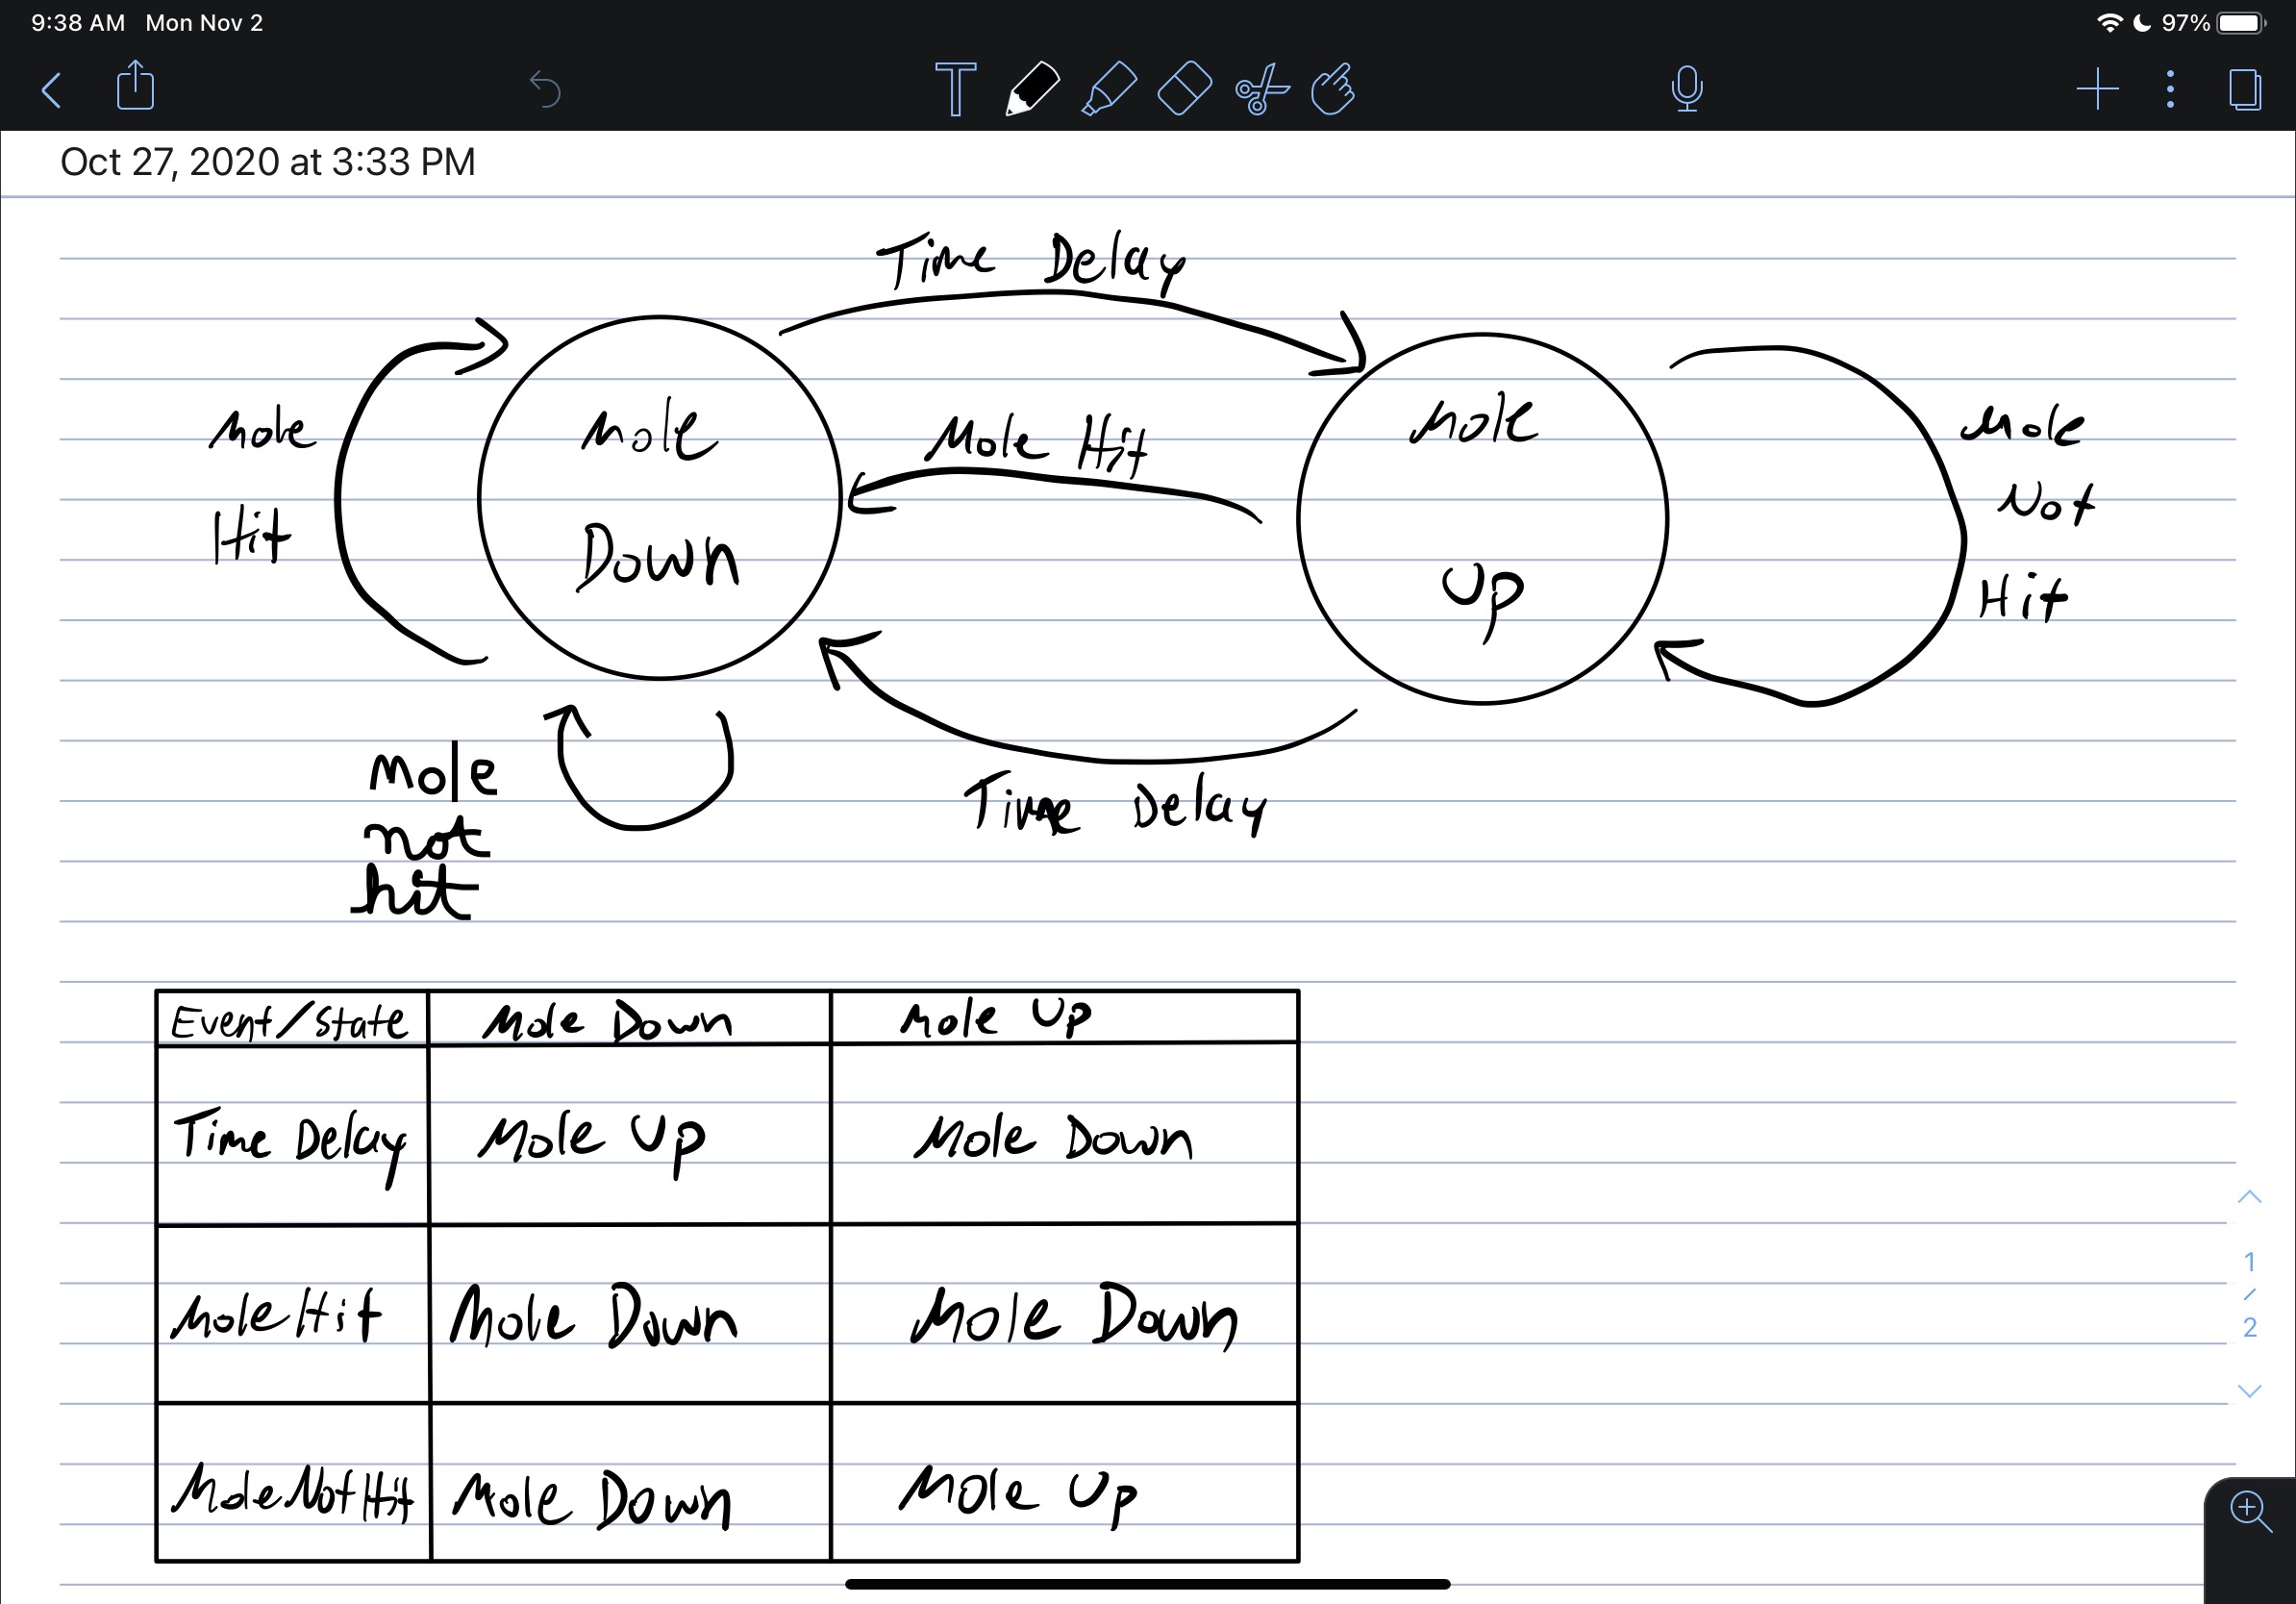 9:38 AM Mon Nov 2
97%
T
Oct 27, 2020 at 3:33 PM
Time Delay
Mole
Hit
Mole
Down
Mole Hit
Mole
Up
Mole
Not
Hit
Time Delay
Mole
not
hit
Event/State Mole Down Mole Up
Time Delay Mole Up Mole Down
Mole Hit Mole Down Mole Down
Mole Not Hit Mole Down Mole Up
1
/
2